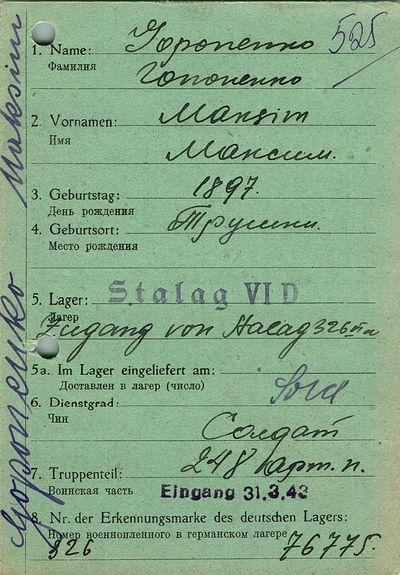 525
1. Name: Goponenko
Фамилия Гопоненко
2. Vornamen: Maksim
Имя Максим.
3. Geburtstag: 1897.
День рождения
4. Geburtsort: Трушки.
Место рождения
5. Lager: Stalag VI D
Лагер
Zugang von Stalag 326 VI a
5a. Im Lager eingeliefert am:
Доставлен в лагер (число)
6. Dienstgrad: Sold
Чин Солдат
248 карт. п.
7. Truppenteil:
Воинская часть Eingang 31.3.43
8. Nr. der Erkennungsmarke des deutschen Lagers:
Номер военнопленного в германском лагере
326 76775.
Goponenko Maksim